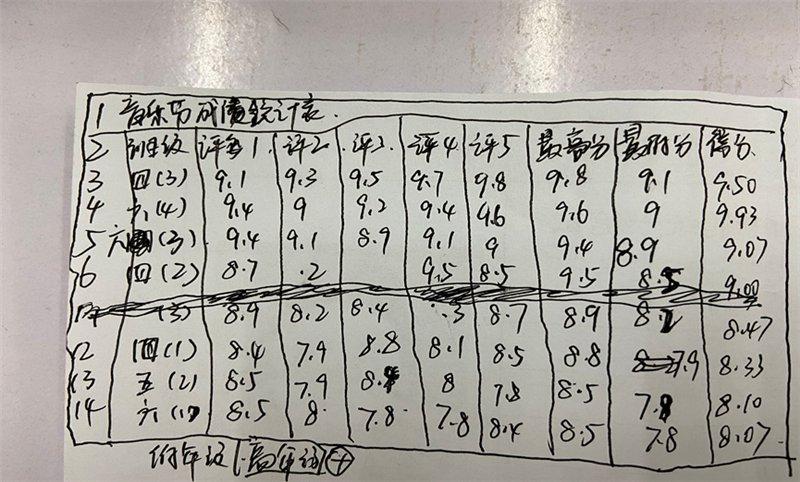 1 音乐节成绩统计表.
2 班级 评委1 评2 评3 评4 评5 最高分 最低分 得分
3 四(3) 9.1 9.3 9.5 9.7 9.8 9.8 9.1 9.50
4 六(4) 9.4 9 9.2 9.4 9.6 9.6 9 9.93
5 六(3) 9.4 9.1 8.9 9.1 9 9.4 8.9 9.07
6 四(2) 8.7 .2 9.5 8.5 9.5 8.5 9.00
(3) 8.9 8.2 8.4 .3 8.7 8.9 8.2 8.47
12 四(1) 8.4 7.9 8.8 8.1 8.5 8.8 7.9 8.33
13 五(2) 8.5 7.9 8.4 8 7.8 8.5 7.8 8.10
14 六(1) 8.5 8 7.8 7.8 8.4 8.5 7.8 8.07
低年级 高年级